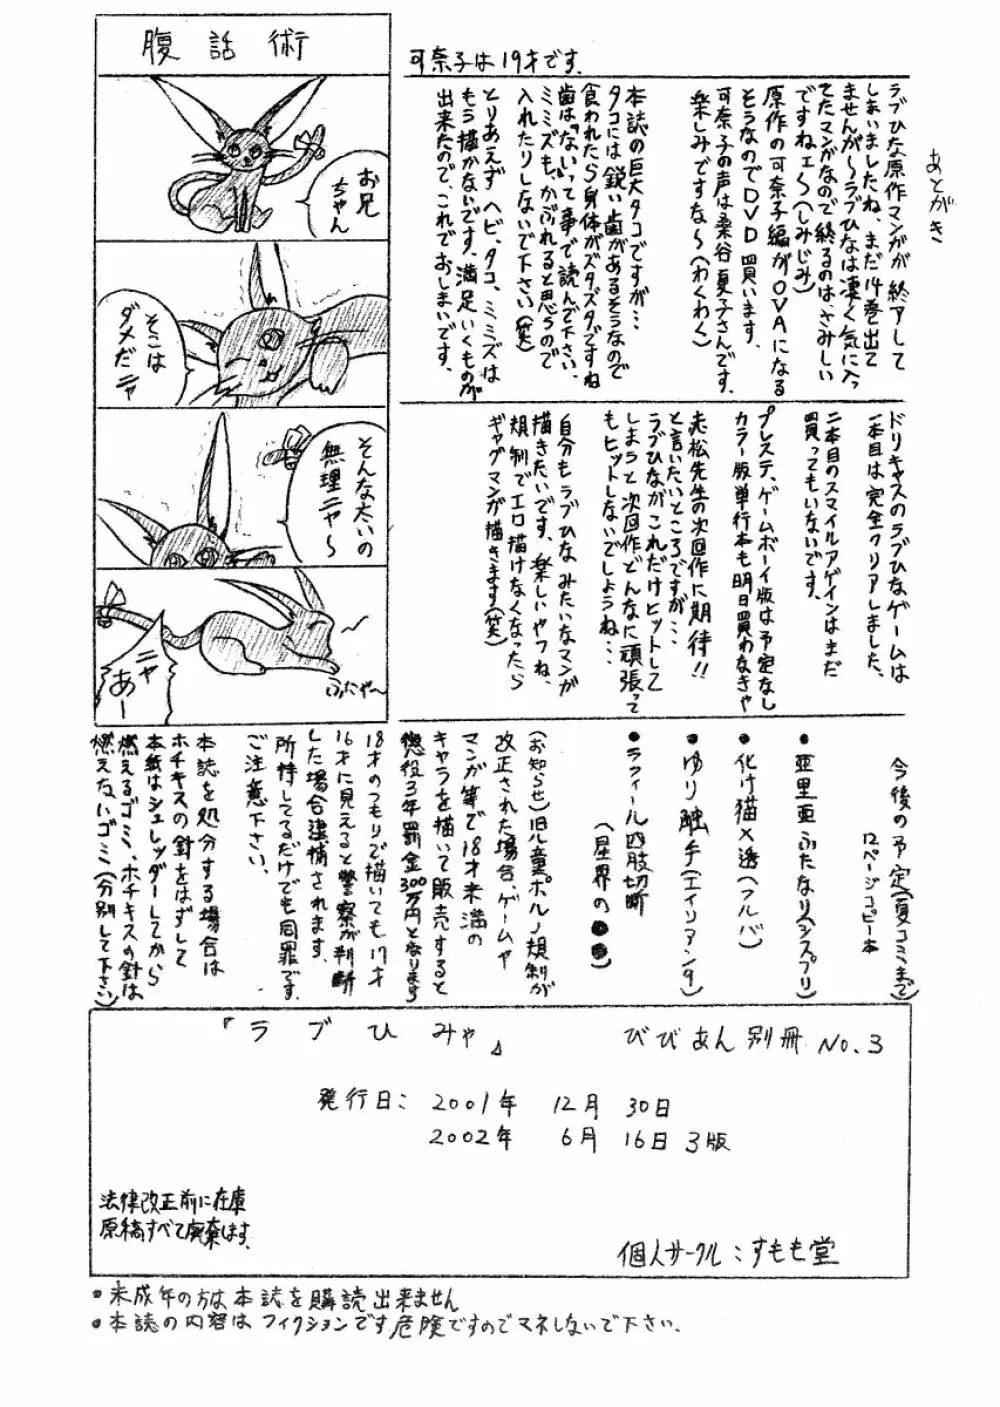 あとがき
可奈子は19才です。
ラブひな原作マンガが終アして
しまいましたね、まだ14巻出て
ませんが～ラブひなは凄く気に入っ
てたマンガなので終るのは、さみしい
ですねェ～(しみじみ)
原作の可奈子編がOVAになる
そうなのでDVD買います。
可奈子の声は桑谷夏子さんです。
楽しみですな～(わくわく)
本誌の巨大タコですが…
タコには鋭い歯があるそうなので
食われたら身体がズタズタですね
歯は「ない」って事で読んで下さい、
ミミズも、かぶれると思うので
入れたりしないで下さい(笑)
とりあえず ヘビ、タコ、ミミズは
もう描かないです。満足いくものが
出来たので、これでおしまいです。
腹話術
お兄
ちゃん
そこは
ダメだニャ
そんな太いの
無理ニャ～
ニャ
あー
ふにゃ～
ドリキャスのラブひなゲームは
1本目は完全クリアしました、
二本目のスマイルアゲインはまだ
買ってもいないです。
プレステ、ゲームボーイ版は予定なし
カラー版単行本も明日買わなきゃ
赤松先生の次回作に期待!!
と言いたいところですが…
ラブひながこれだけヒットして
しまうと次回作どんなに頑張って
もヒットしないでしょうね…
自分もラブひなみたいなマンガ
描きたいです、楽しいやつね、
規制でエロ描けなくなったら
ギャグマンガ描きます(笑)
今後の予定(夏コミまで)
12ページコピー本
●亜里亜ふたなり(シスプリ)
●化け猫×透(フルバ)
●ゆり触手(エイリアン9)
●ラフィール四肢切断
(星界の●●)
(お知らせ)旧児童ポルノ規制が
改正された場合、ゲームや
マンガ等で18才未満の
キャラを描いて販売すると
懲役3年罰金300万円となります
18才のつもりで描いても17才
16才に見えると警察が判断
した場合逮捕されます。
所持してるだけでも同罪です
ご注意下さい。
本誌を処分する場合は
ホチキスの針をはずして
本紙はシュレッダーしてから
燃えるゴミ、ホチキスの針は
燃えないゴミ(分別して下さい)
『ラブひみゃ』 びびあん別冊 No.3
発行日: 2001年 12月 30日
2002年 6月 16日 3版
法律改正前に在庫
原稿すべて廃棄します。
個人サークル:すもも堂
•未成年の方は本誌を購読出来ません
•本誌の内容はフィクションです危険ですのでマネしないで下さい.